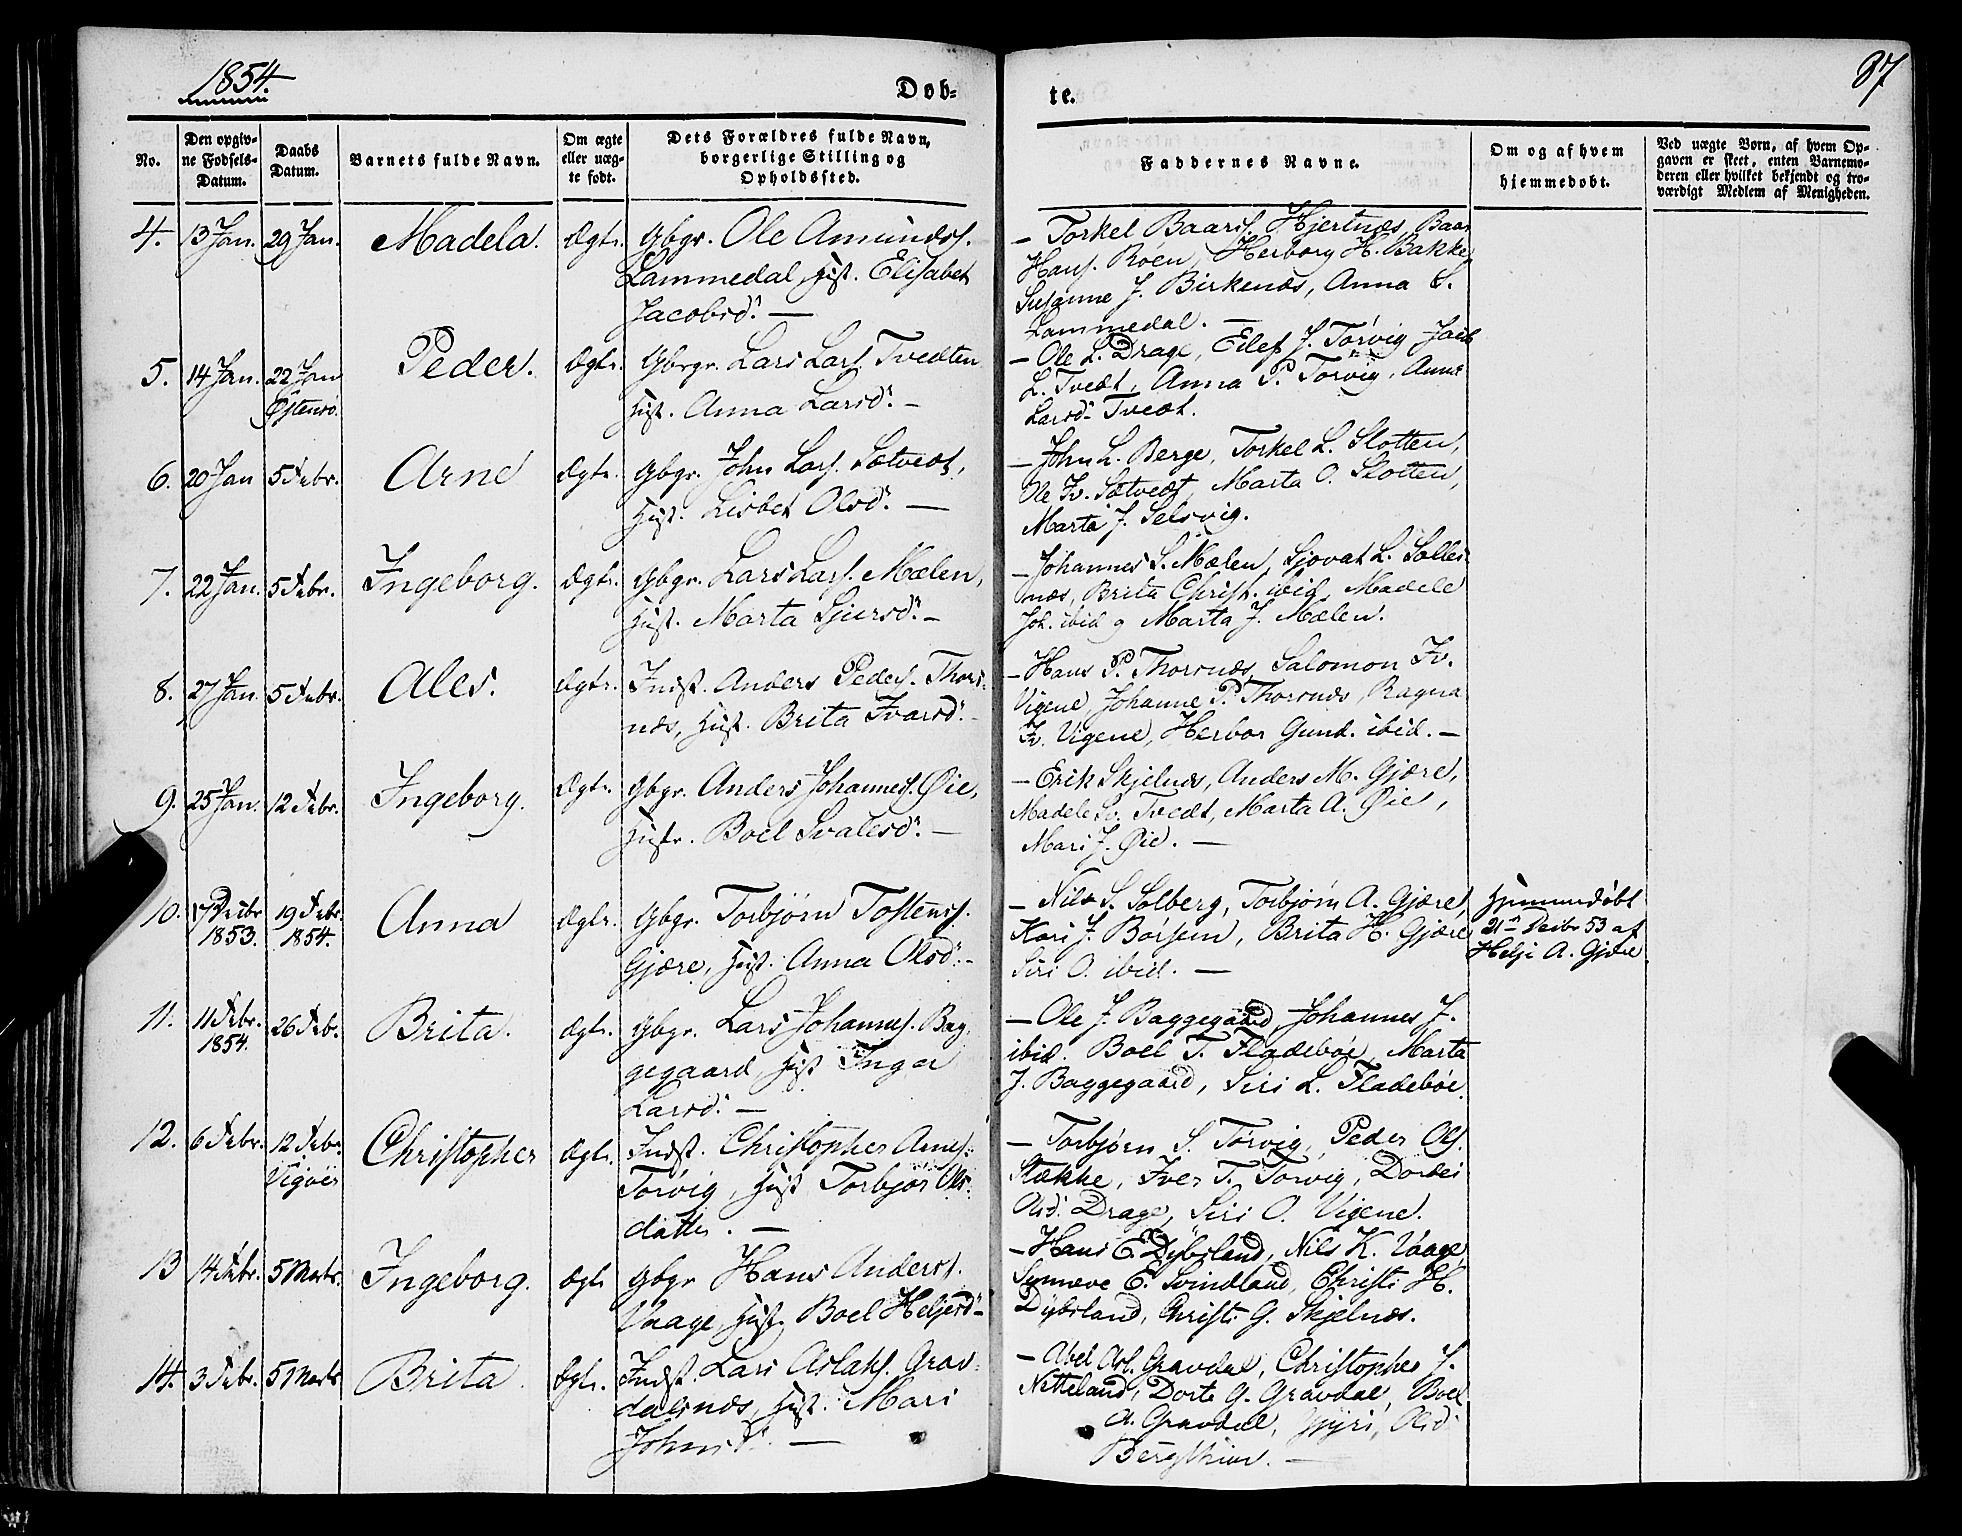 1854.
Dob=
te.
87
No.
Den opgiv=
ne Fødsels=
Datum.
Daabs
Datum.
Barnets fulde Navn.
Om ægte
eller uæg=
te født.
Dets Forældres fulde Navn,
borgerlige Stilling og
Opholdssted.
Faddernes Navne.
Om og af hvem
hjemmedøbt.
Ved uægte Børn, af hvem Op=
gaven er skeet, enten Barnemo=
deren eller hvilket bekjendt og tro=
værdigt Medlem af Menigheden.
4. 13 Jan. 29 Jan. Madela. Ægte. Gbgr. Ole Amunds.
Lammedal, Hust. Elisabet
Jacobsd. —
— Torkel Baars. Hjertnæs, Baar
Hans. Röen, Herborg H. Bakke,
Susanne J. Birkenæs, Anna S.
Lammedal. —
5. 14 Jan. 22 Jan Peder. Ægte. Gbrgr. Lars Lars. Tvedten
Østensö. Hust. Anna Larsd. —
— Ole L. Drage, Eilef J. Torvig, Jacob
L. Tvedt, Anna P. Torvig, Anna
Larsd. Tvedt.
6. 20 Jan 5 Febr. Arne Ægte. Gbgr. John Lars. Sætvedt,
Hust. Lisbet Olsd. —
— John L. Berge, Torkel L. Slotten,
Ole Iv. Sætvedt, Marta O. Slotten,
Marta J. Selsvig.
7. 22 Jan. 5 Febr. Ingeborg. Ægte. Gbgr. Lars Lars. Mælen,
Hust. Marta Sjursd. —
— Johannes S. Mælen, Sjovat L. Solles
næs, Brita Christ. ibid, Madele
Joh. ibid g Marta J. Mælen.
8. 27 Jan. 5 Febr. Ales. Ægte. Indst. Anders Peders. Thors=
næs, Hust. Brita Ivarsd. —
— Hans P. Thorsnæs, Salomon Iv.
Vigene, Johanne P. Thorsnæs, Ragna
Iv. Vigene, Herbor Gund. ibid. —
9. 25 Jan. 12 Febr. Ingeborg. Ægte. Gbgr. Anders Johannes. Øie,
Hustr. Boel Svalesd. —
— Erik Skjelnæs, Anders M. Gjære,
Madele Sv. Tvedt, Marta A. Øie,
Mari J. Øie. —
10. 17 Decbr 19 Febr. Anna Ægte. Gbgr. Torbjörn Tostens.
1853. 1854. Gjære, Hust. Anna Olsd. —
— Nils S. Solberg, Torbjörn A. Gjære,
Kari J. Börsem, Brita H. Gjære
Siri O. ibid. —
Hjemmedöbt
21n Decbr 53 af
Helje A. Gjære
11. 11 Febr. 26 Feb. Brita. Ægte. Gbgr. Lars Johannes. Bag=
1854. gegaard, Hust Inga
Larsd. —
— Ole J. Baggegaard, Johannes J.
ibid. Boel T. Fladeböe, Marta
J. Baggegaard, Siri L. Fladeböe.
12. 6 Febr. 12 Febr. Christopher Ægte. Indst. Christopher Arnes.
Vigöer Torvig, Hust Torbjor Ols=
datter. —
— Torbjörn S. Torvig, Peder Ols.
Stække, Iver T. Torvig, Dordei
Olsd. Drage, Siri O. Vigene.
13 14 Febr. 5 Marts. Ingeborg. Ægte Gbgr Hans Anders.
Vaage, Hust. Boel Heljesd —
— Hans E. Dybsland, Nils K. Vaage,
Synneve E. Svindland, Christi H.
Dybsland, Christi G. Skjelnæs.
14. 3 Febr. 5 Marts Brita. Ægte. Indst. Lars Aslaks. Grav=
dalsnæs, Hust. Mari
Johnsd. —
— Abel Asl. Gravdal, Christopher J.
Netteland, Dorte G. Gravdal, Boel
A. Gravdal, Gjyri, Olsd